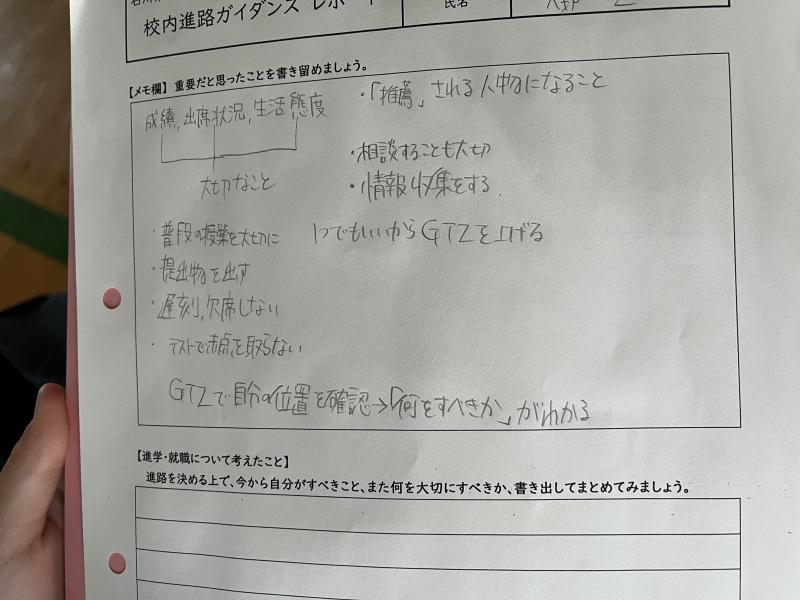 校内進路ガイダンス レポート
氏名
【メモ欄】重要だと思ったことを書き留めましょう。
成績, 出席状況, 生活態度
大切なこと
・「推薦」される人物になること
・相談することも大切
・情報収集をする.
・普段の授業を大切に
1つでもいいからGTZを上げる
・提出物を出す
・遅刻, 欠席しない
・テストで赤点を取らない
GTZで自分の位置を確認→「何をすべきか」がわかる
【進学・就職について考えたこと】
進路を決める上で、今から自分がすべきこと、また何を大切にすべきか、書き出してまとめてみましょう。